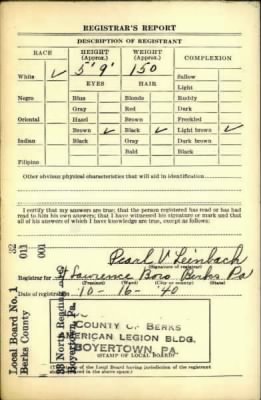 REGISTRAR'S REPORT
DESCRIPTION OF REGISTRANT
RACE HEIGHT (Approx.) WEIGHT (Approx.) COMPLEXION
White ✓ 5' 9" 150 Sallow
EYES HAIR Light
Negro Blue Blonde Ruddy
Gray Red Dark
Oriental Hazel Brown Freckled
Brown ✓ Black ✓ Light brown ✓
Indian Black Gray Dark brown
Bald Black
Filipino
Other obvious physical characteristics that will aid in identification
I certify that my answers are true; that the person registered has read or has had
read to him his own answers; that I have witnessed his signature or mark and that
all of his answers of which I have knowledge are true, except as follows:
Pearl V Leinbach
(Signature of registrar)
Registrar for St Lawrence Boro Berks Pa
(Precinct) (Ward) (City or county) (State)
Date of registration 10 - 16 - 40
Local Board No. 1 32
Berks County 011
001
38 North Reading
Boyertown, Pa.
COUNTY OF BERKS
AMERICAN LEGION BLDG.
BOYERTOWN, PA.
(STAMP OF LOCAL BOARD)
(The stamp of the Local Board having jurisdiction of the registrant
shall be placed in the above space.)